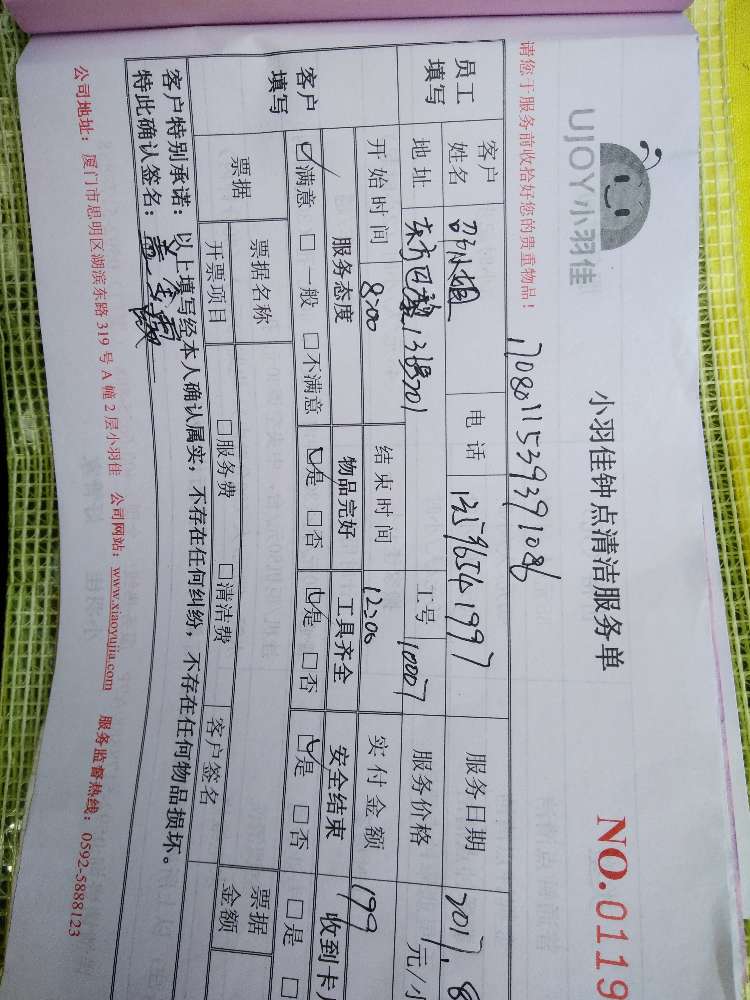 UJOY小羽佳
小羽佳钟点清洁服务单
NO.0119
请您于服务前收拾好您的贵重物品!
1708011539391086
员工填写 客户姓名 小姐 电话 13596541997 服务日期 2017.8
地址 东方巴黎13号701 工号 10007 服务价格 元/小
开始时间 8:00 结束时间 12:00 实付金额 199
客户填写 服务态度 物品完好 工具齐全 安全结束 收到卡
☑满意 □一般 □不满意 ☑是 □否 ☑是 □否 ☑是 □否 □是 □
票据 票据名称 票据金额
开票项目 □服务费 □清洁费 客户签名
客户特别承诺:以上填写经本人确认属实,不存在任何纠纷,不存在任何物品损坏。
特此确认签名:
公司地址:厦门市思明区湖滨东路319号A幢2层小羽佳 公司网站:www.xiaoyujia.com 服务监督热线:0592-5888123